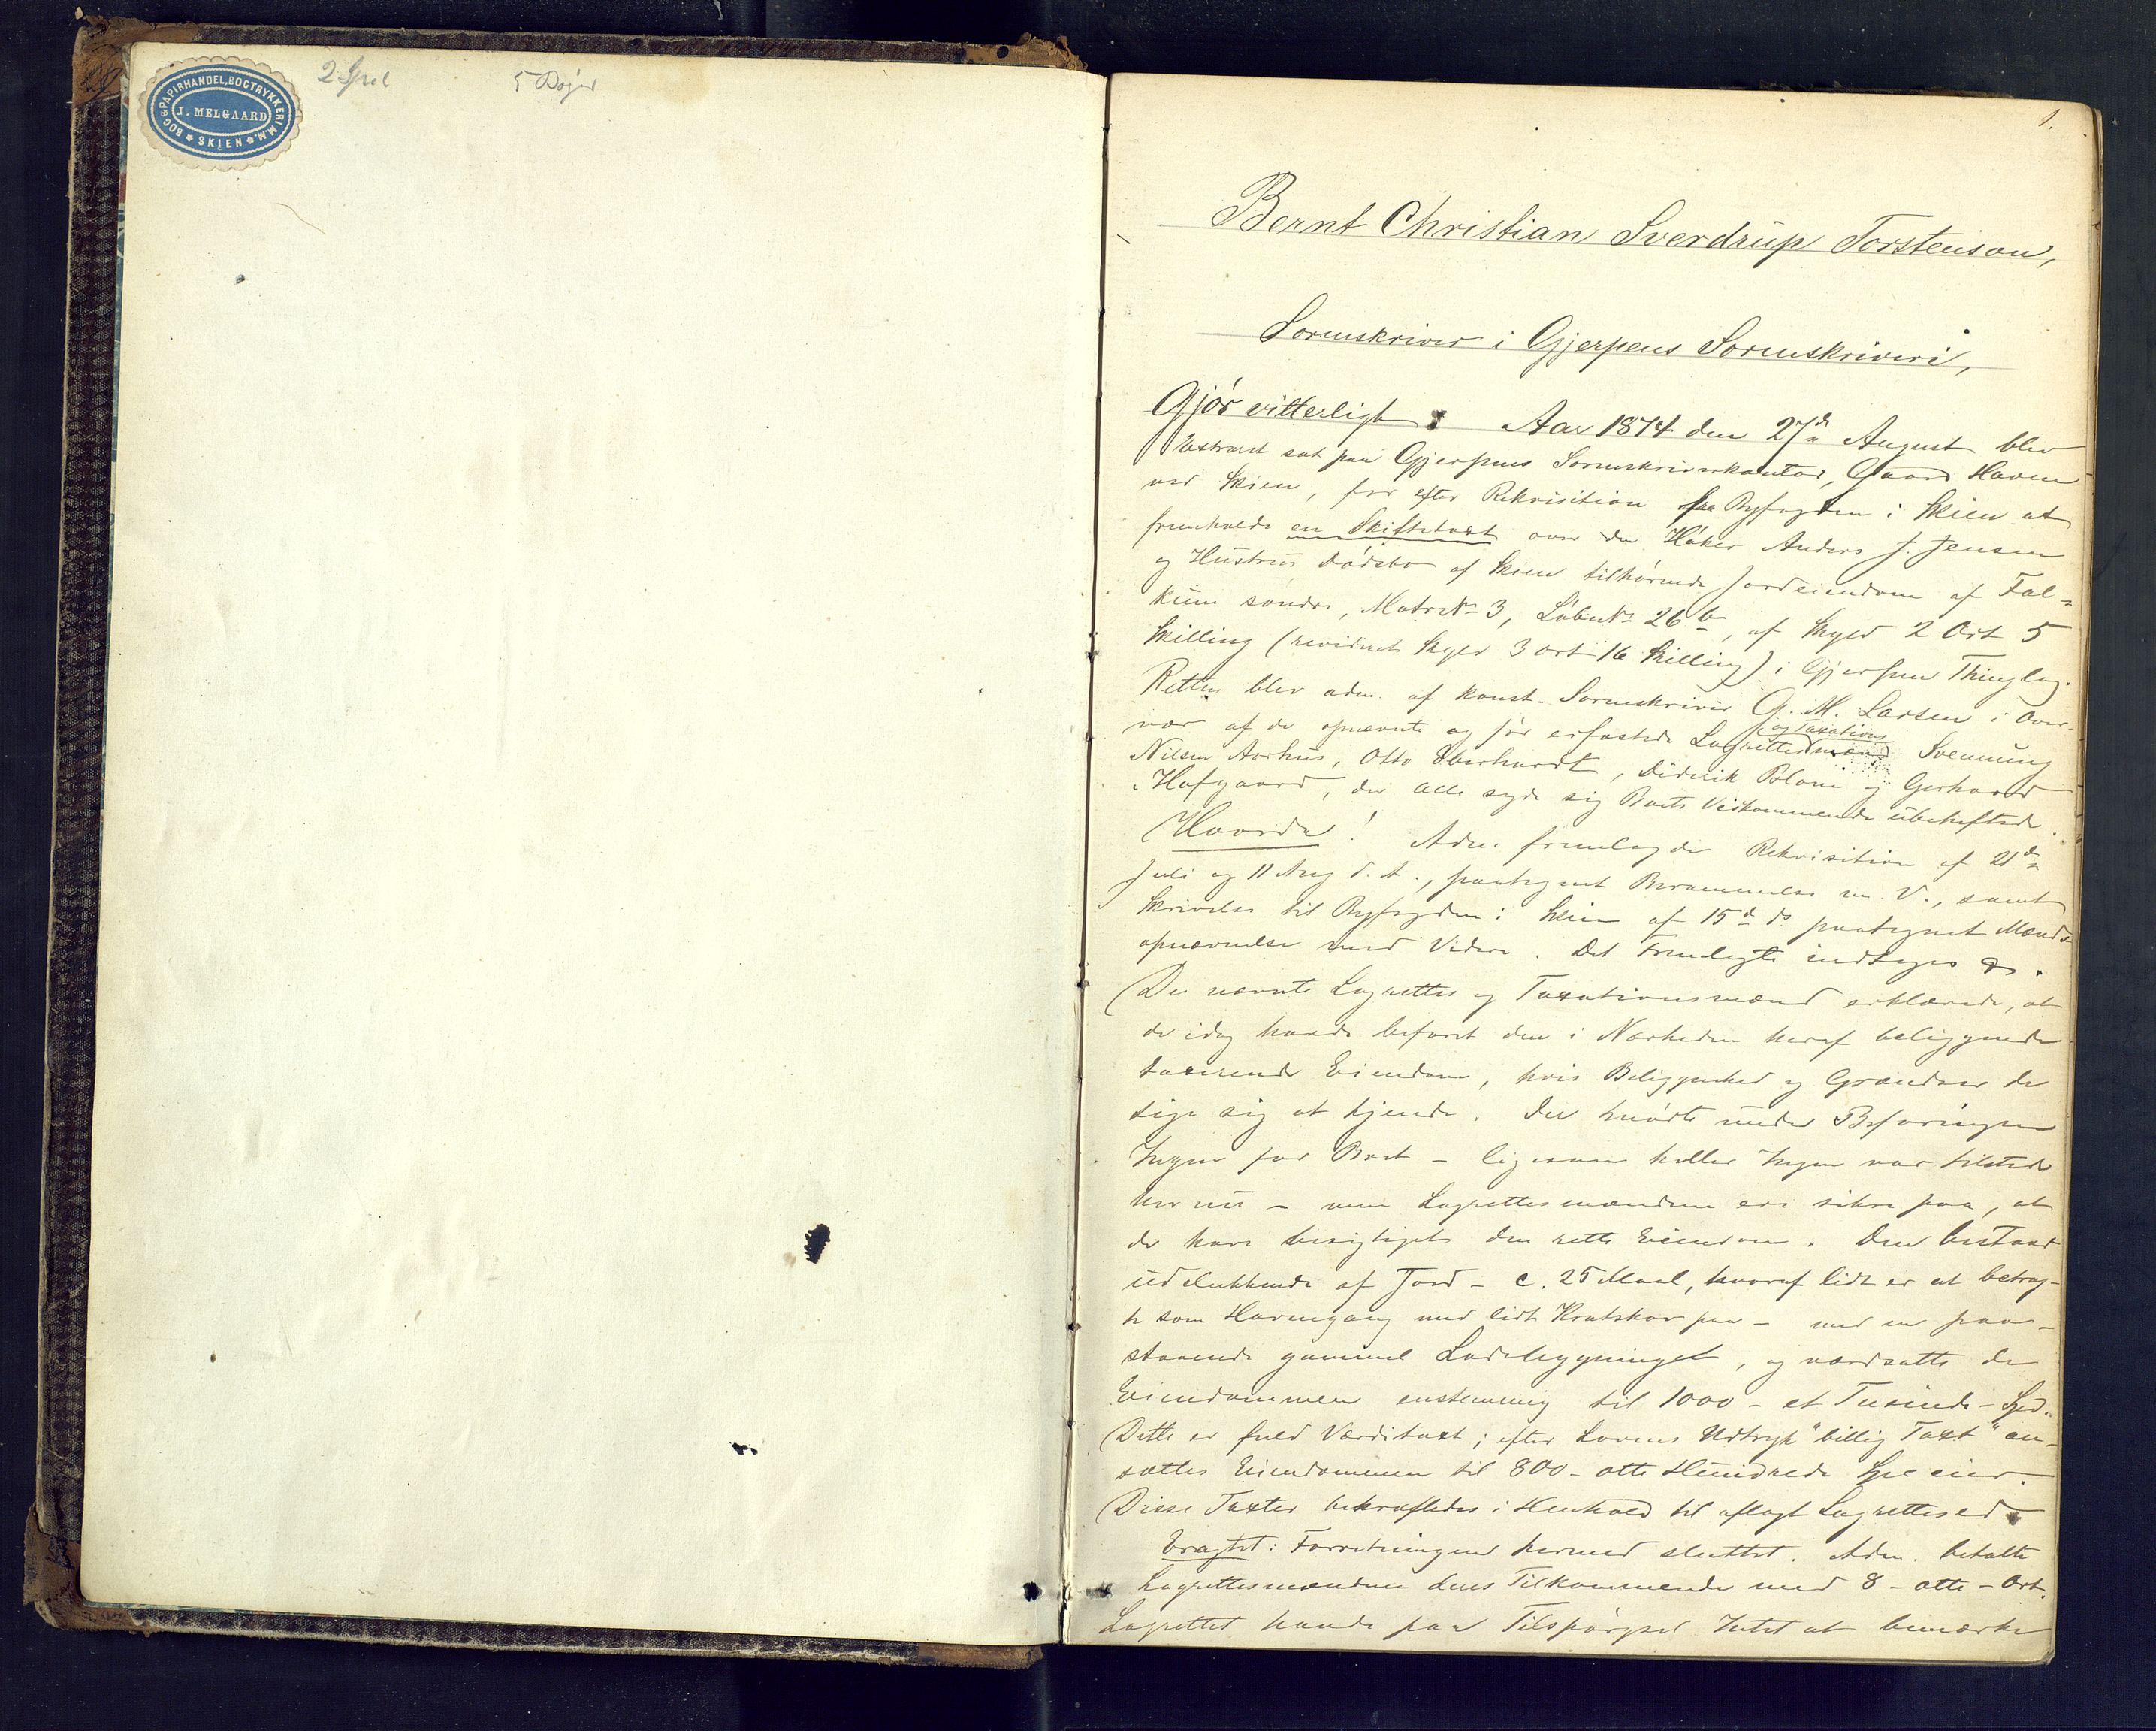 BOG & PAPIRHANDEL, BOGTRYKKERI M.M.
J. MELGAARD
SKIEN
2 Spd
5 Bøger
1.
Bernt Christian Sverdrup Torstenson,
Sorenskriver i Gjerpens Sorenskriveri,
Gjör vitterligt: Aar 1874 den 27de August blev
Extraret sat paa Gjerpens Sorenskriverkontor, Gaard Haven
ved Skien, for efter Rekvisition fra Byfogden i Skien at
fremholde en Skiftetaxt over den Höker Anders J. Jensen
og Hustrus Dödsbo af Skien tilhörende Jordeiendom af Fal-
kum söndre, Matr No 3, Löbe No 26 b, af Skyld 2 Ort 5
Skilling (revideret Skyld 3 ort 16 Skilling) i Gjerpen Thinglag.
Retten blev adm. af konst. Sorenskriver G. M. Larsen i Over-
vær af de opnævnte og för erfastede Lagrettes og Taxationsmænd Svennung
Nilsen Aarhus, Otto Eberhardt, Diderik Blom og Gerhard
Hofgaard, der alle sagde sig Boets Vedkommende ubeheftede.
Hvorda! Adm. fremlagde Rekvisition af 21de
Juli og 11 Aug d. A., paategnet Berammelse m. V., samt
Skrivelse til Byfogden i Skien af 15de ds paategnet Mænds-
opnævnelse med Videre. Det Fremlagte indtages
De nævnte Lagrettes og Taxationsmænd erklærede, at
de idag havde befaret den i Nærheden heraf beliggende
taxerende Eiendom, hvis Beliggenhed og Grændser de
sige sig at kjende. Der mödte under Befaringen
Ingen for Boet – ligesom heller Ingen var tilstede
her nu – men Lagrettesmændene ere sikre paa, at
de have besigtiget den rette Eiendom. Den bestaar
udelukkende af Jord – c. 25 Maal, hvoraf lidt er at betrag-
te som Havnegang med lidt Kratskov paa – med en paa-
staaende gammel Ladebygninget, og værdsatte de
Eiendommen enstemmig til 1000 – et Tusinde – Spd.
Dette er fuld Værditaxt; efter Lovens Udtryk "billig Taxt" an-
sættes Eiendommen til 800 – otte Hundrede Specier.
Disse Taxter bekræftedes i Henhold til aflagt Lagrettesed
Eragtet: Forretningen hermed sluttet. Adm. betalte
Lagrettesmændene deres Tilkommende med 8 – otte – Ort.
Lagrettet havde paa Tilspörgsel Intet at bemærke